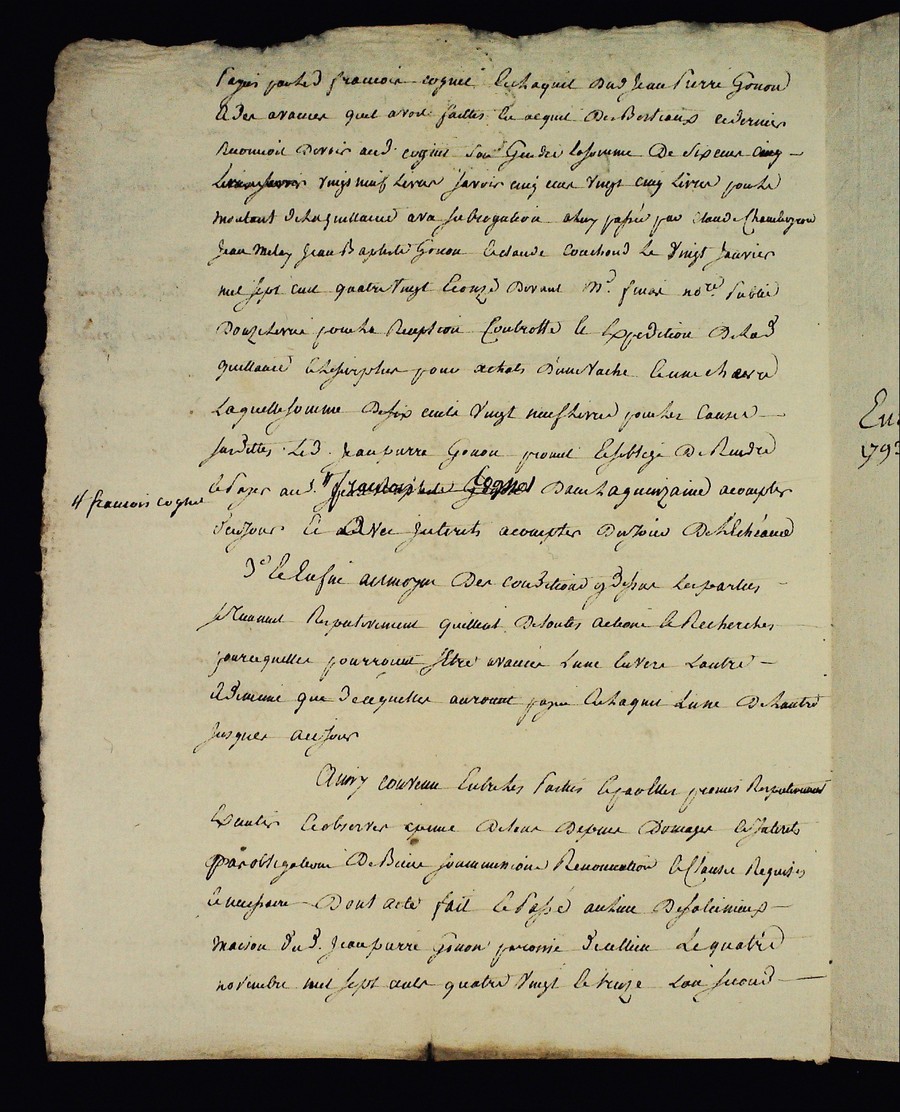 payés par led francois cogniet et a laquit dud Jean Pierre Gonon
et des avances quil avoit faittes en acquit de Bestiaux ce dernier
Reconnoit devoir aud. cogniet son gendre la somme de six cens
vingt neuf livres savoir cinq cens vingt cinq livres pour le
montant de la quittance a va subrogation a luy passée par Claude Chamboyron
Jean Melay Jean Baptiste Gonon et claude couchoud le vingt Janvier
mil sept cent quatre vingt et onze devant Me. finas nore. Public
Douze livres pour la Reception controlle et Expedition de lad
quittance et le surplus pour achats d'une vache et une chevre
laquelle somme de six cents vingt neuf livres pour les causes
susdittes led. Jean pierre Gonon promet et soblige de Rendre
et Payer aud. " dans la quinzaine a compter
" francois cogniet
de ce jour et avec interets a compter du jour de lecheance
3° et Enfin au moyen des conditions cy dessus les parties
se tiennent Respectivement quittent de toutes actions et Recherches
pour cequelles pourroient setre avancé lune envers lautre
et de meme que de cequelles auroient payé et a laquit lune de lautre
jusques a ce jour
Ainsy convenu Entre les Parties et par Elles promis Respectivement
Executer et observer a peine de tous depens domages et interets
par obligations de Biens soummissions Renonciation et clauses Requises
et necessaires Dont acte fait et Passé au lieu de
maison dud. Jean pierre Gonon paroisse dud lieu Le quatre
novembre mil sept cents quatre vingt et treize Lan second
En
179